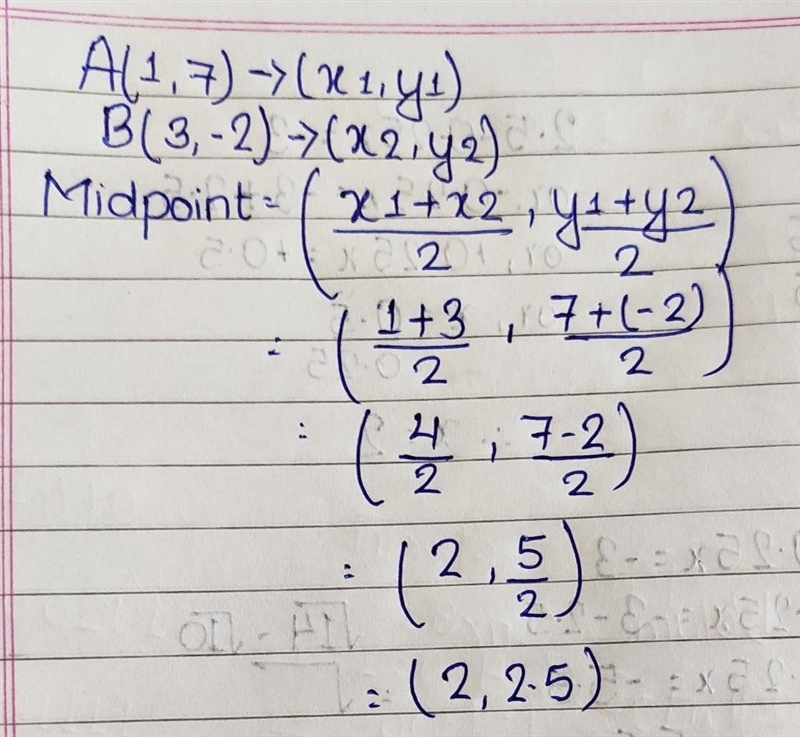 A(1,7)→(x1,y1)
B(3,-2)→(x2,y2)
Midpoint = (x1+x2/2, y1+y2/2)
= (1+3/2, 7+(-2)/2)
= (4/2, 7-2/2)
= (2, 5/2)
= (2, 2·5)